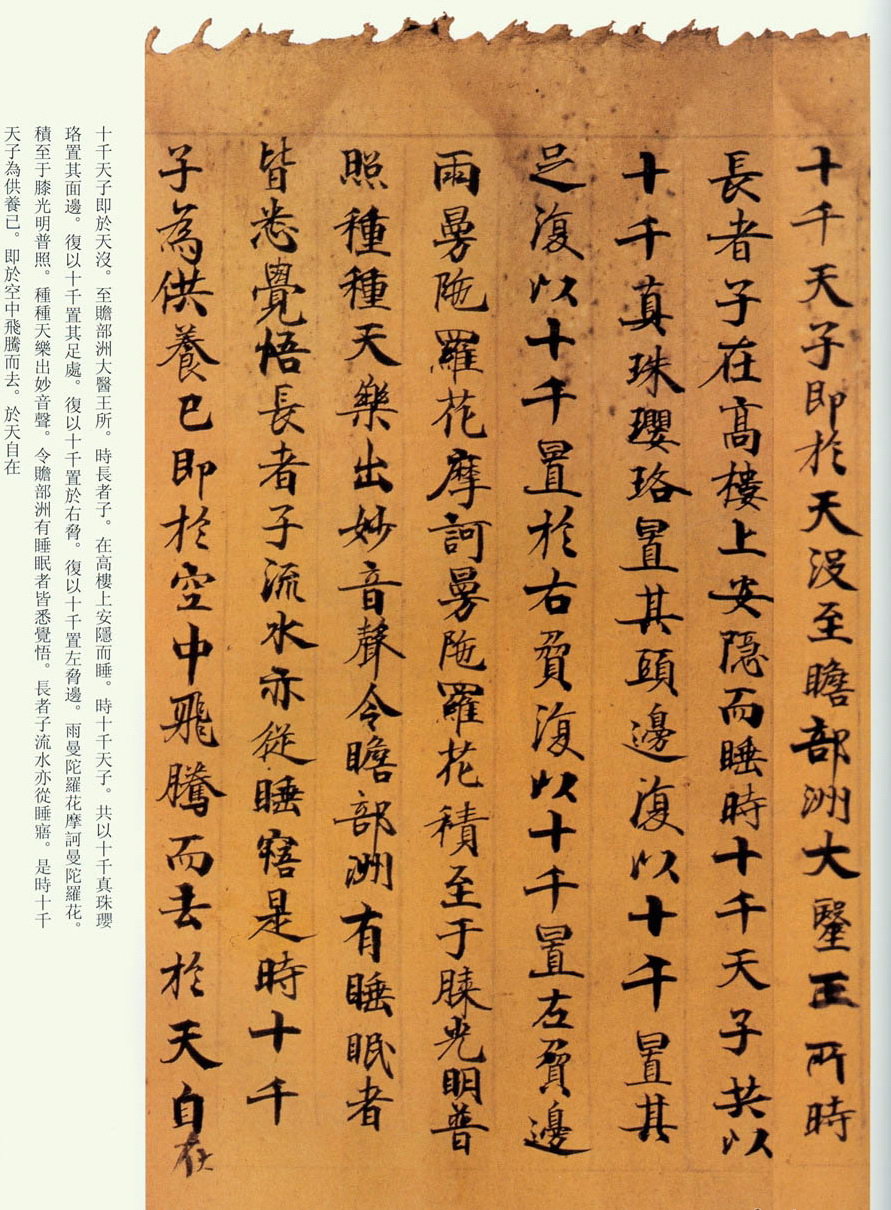 十千天子即於天没至瞻部洲大毉王所時
長者子在高樓上安隱而睡時十千天子共以
十千真珠瓔珞置其頭邊復以十千置其
足復以十千置於右脅復以十千置左脅邊
雨曼陁羅花摩訶曼陁羅花積至于膝光明普
照種種天樂出妙音聲令瞻部洲有睡眠者
皆悉覺悟長者子流水亦從睡寤是時十千
子為供養已即於空中飛騰而去於天自在
十千天子即於天沒。至贍部洲大醫王所。時長者子。在高樓上安隱而睡。時十千天子。共以十千真珠瓔
珞置其面邊。復以十千置其足處。復以十千置於右脅。復以十千置左脅邊。雨曼陀羅花摩訶曼陀羅花。
積至于膝光明普照。種種天樂出妙音聲。令贍部洲有睡眠者皆悉覺悟。長者子流水亦從睡寤。是時十千
天子為供養己。即於空中飛騰而去。於天自在